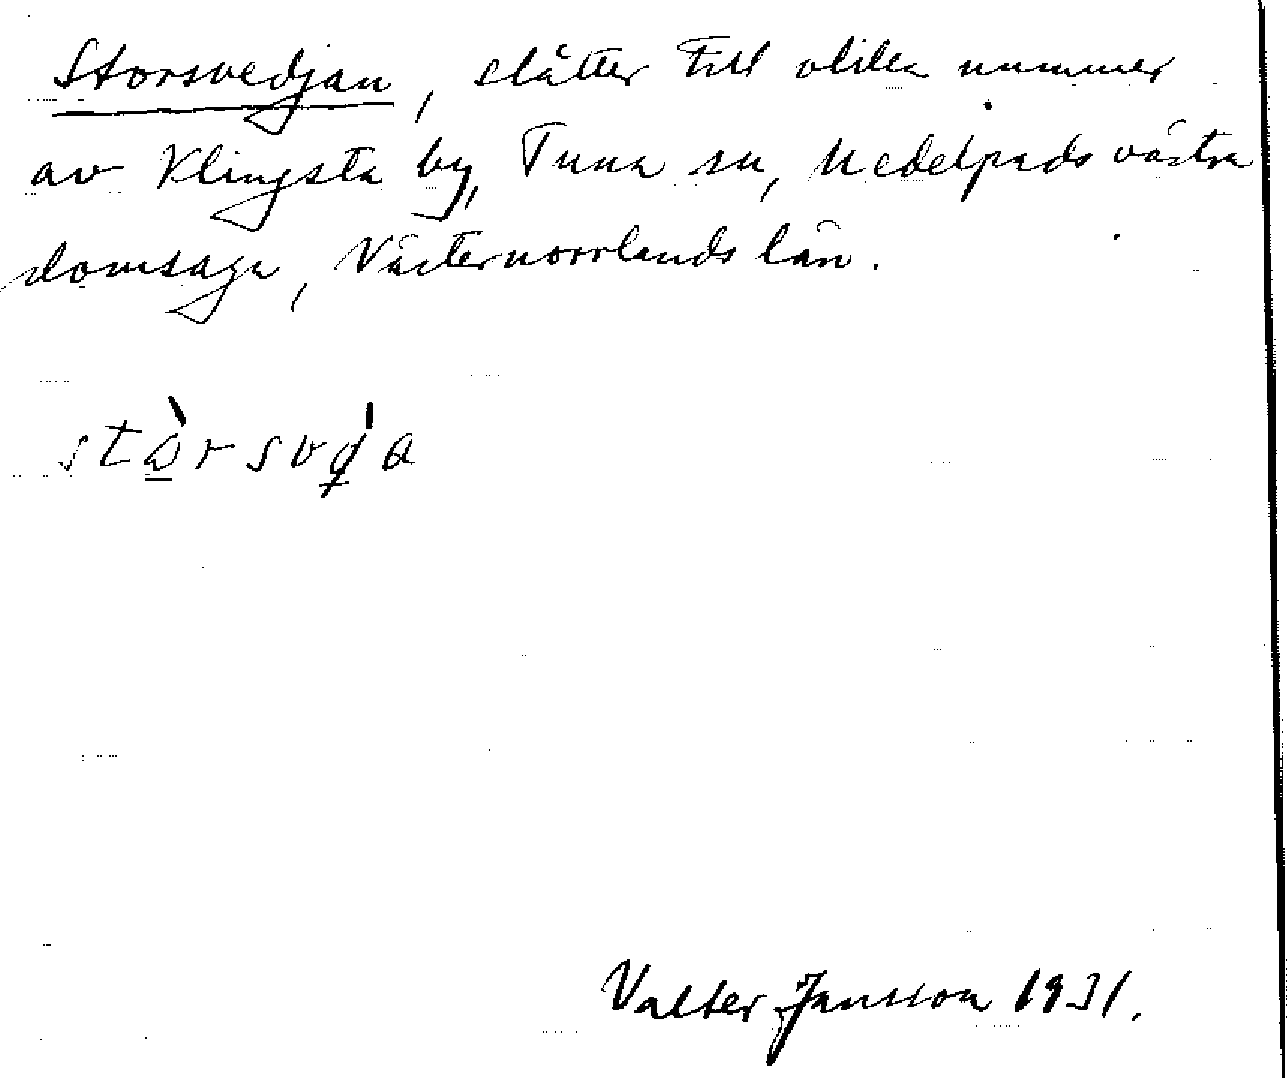 Storsvedjan, slåtter till olika nummer
av Klingsta by, Tuna sn, Medelpads västra
domsaga, Västernorrlands län.
Valter Jansson 1931.